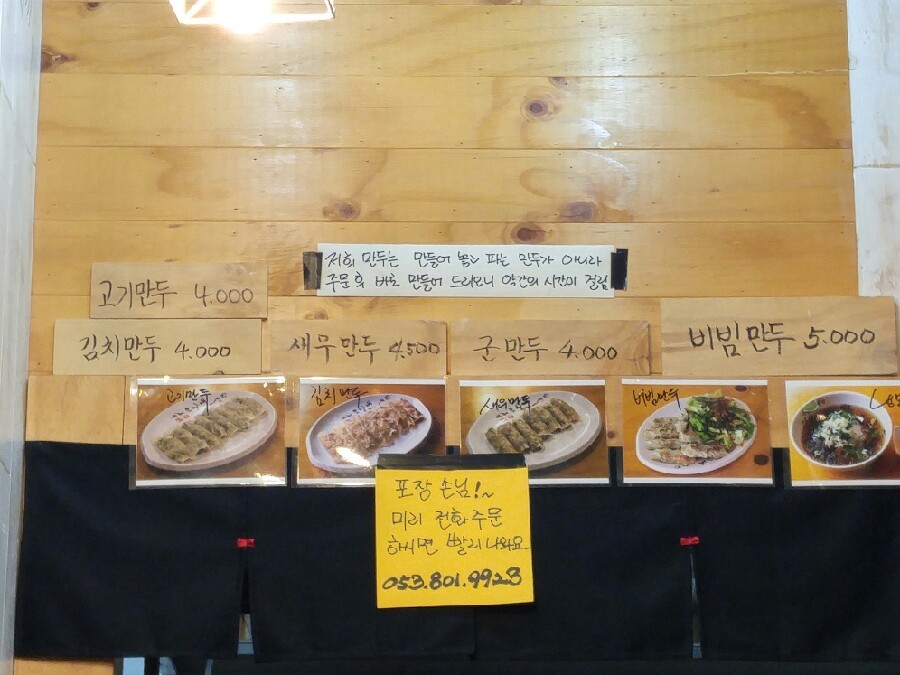 저희 만두는 만들어 놓고 파는 만두가 아니라
주문 후 바로 만들어 드리오니 약간의 시간이 걸림
고기만두 4.000
김치만두 4.000
새우만두 4.500
군만두 4.000
비빔만두 5.000
고기만두
김치만두
새우만두
비빔만두
포장 손님!~
미리 전화주문
하시면 빨리나와요
053.801.9923